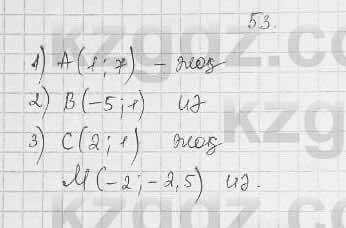 53.
1) A(1; 7) - жоқ
2) B(-5; 1) иә
3) C(2; 1) жоқ
M(-2; -2,5) иә.
kzgdz.com